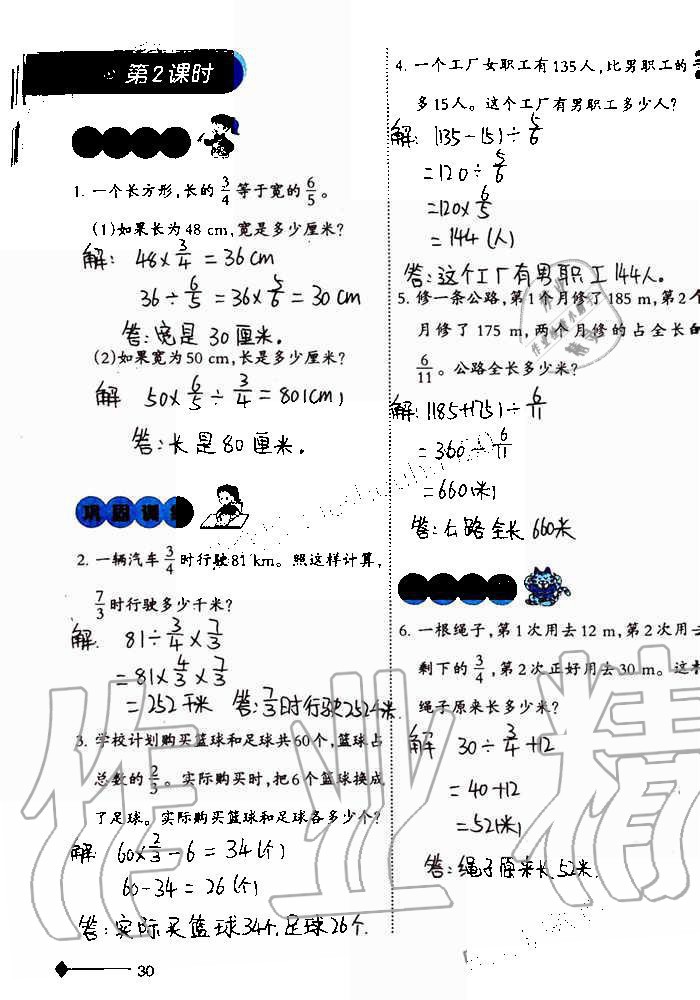 第2课时
1. 一个长方形,长的 3/4 等于宽的 6/5 。
(1)如果长为48 cm,宽是多少厘米?
解: 48×3/4=36cm
36÷6/5=36×5/6=30cm
答:宽是30厘米.
(2)如果宽为50 cm,长是多少厘米?
解 50×6/5÷3/4=80(cm)
答:长是80厘米.
巩固训练
2. 一辆汽车 3/4 时行驶81 km。照这样计算,
7/3 时行驶多少千米?
解: 81÷3/4×7/3
=81×4/3×7/3
=252千米 答: 7/3时行驶2524米
3. 学校计划购买篮球和足球共60个,篮球占
总数的 2/3 。实际购买时,把6个篮球换成
了足球。实际购买篮球和足球各多少个?
解: 60×2/3-6=34(个)
60-34=26(个)
答:实际买篮球34个,足球26个.
30
4. 一个工厂女职工有135人,比男职工的
多15人。这个工厂有男职工多少人?
解: (135-15)÷5/6
=120÷5/6
=120×6/5
=144(人)
答:这个工厂有男职工144人.
5. 修一条公路,第1个月修了185 m,第2个
月修了175 m,两个月修的占全长的
6/11 。公路全长多少米?
解: (185+175)÷6/11
=360÷6/11
=660(米)
答:公路全长660米
6. 一根绳子,第1次用去12 m,第2次用去
剩下的 3/4 ,第2次正好用去30 m。这根
绳子原来长多少米?
解 30÷3/4+12
=40+12
=52(米)
答:绳子原来长52米.
作业精